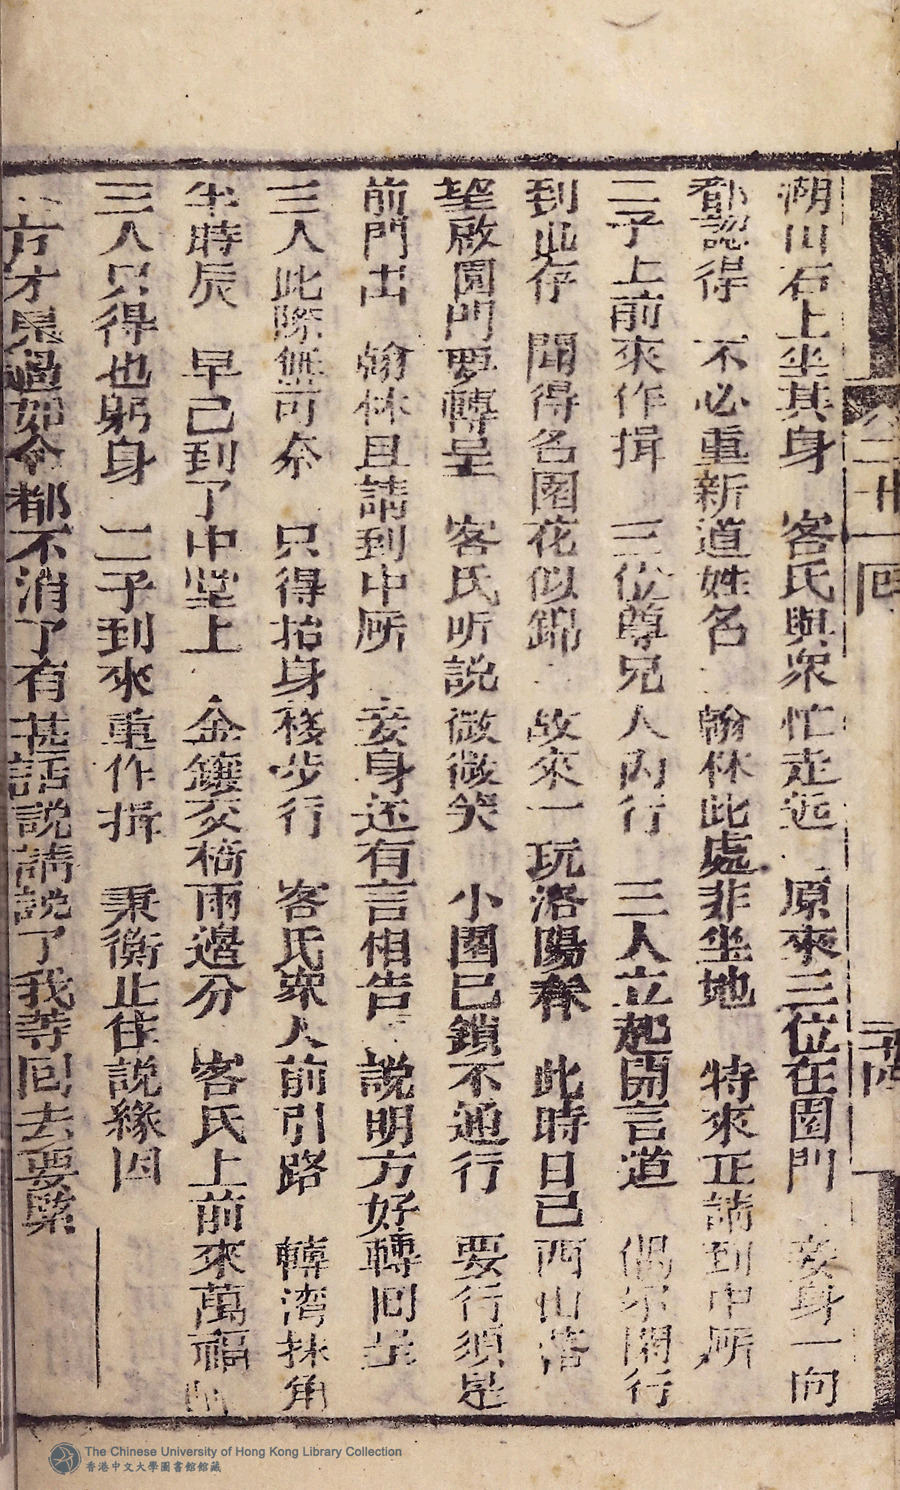 湖山石上坐其身　客氏與衆忙走近　原來三位在園門　妾身一向
都認得　不必重新道姓名　翰林此處非坐地　特來正請到中所
二子上前來作揖　三位尊兄人內行　三人立起開言道　偶尔閑行
到此存　聞得名園花似錦　故來一玩洛陽春　此時日已西山落
望啟園門要轉呈　客氏听説微微笑　小園已鎖不通行　要行須是
前門出　翰林且請到中所　妾身还有言相告　說明方好轉回
三人此際無可奈　只得抬身移步行　客氏衆人前引路　轉湾抹角
半時辰　早已到了中堂上　金鑲交椅兩邊分　客氏上前來萬福
三人只得也躬身　二子到來重作揖　秉衡止住說緣因
方才見過如今都不消了有甚話說請說了我等回去要緊
二十一回
The Chinese University of Hong Kong Library Collection
香港中文大學圖書館館藏